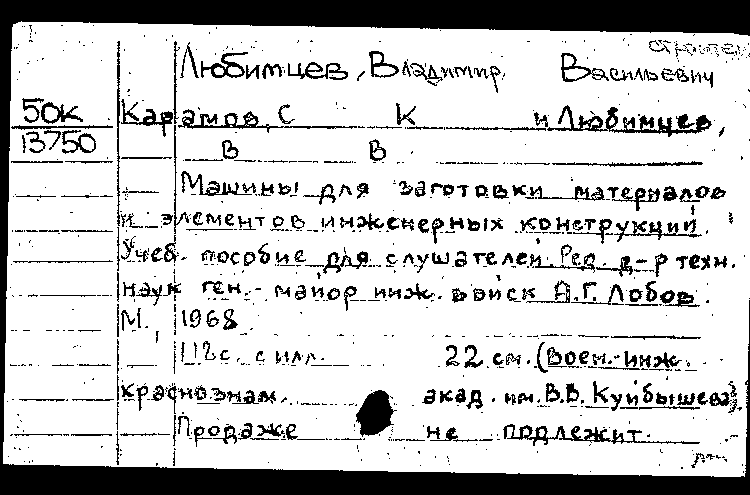 Любимцев, Владимир Васильевич
50К Карамов, С К и Любимцев,
13750 В В
Машины для заготовки материалов
и элементов инженерных конструкций.
Учеб. пособие для слушателей. Ред. д-р техн.
наук ген.-майор инж. войск А.Г. Лобов.
М., 1968
112 с. с илл. 22 см. (Воен.-инж.
краснознам. акад. им. В.В. Куйбышева).
Продаже не подлежит.